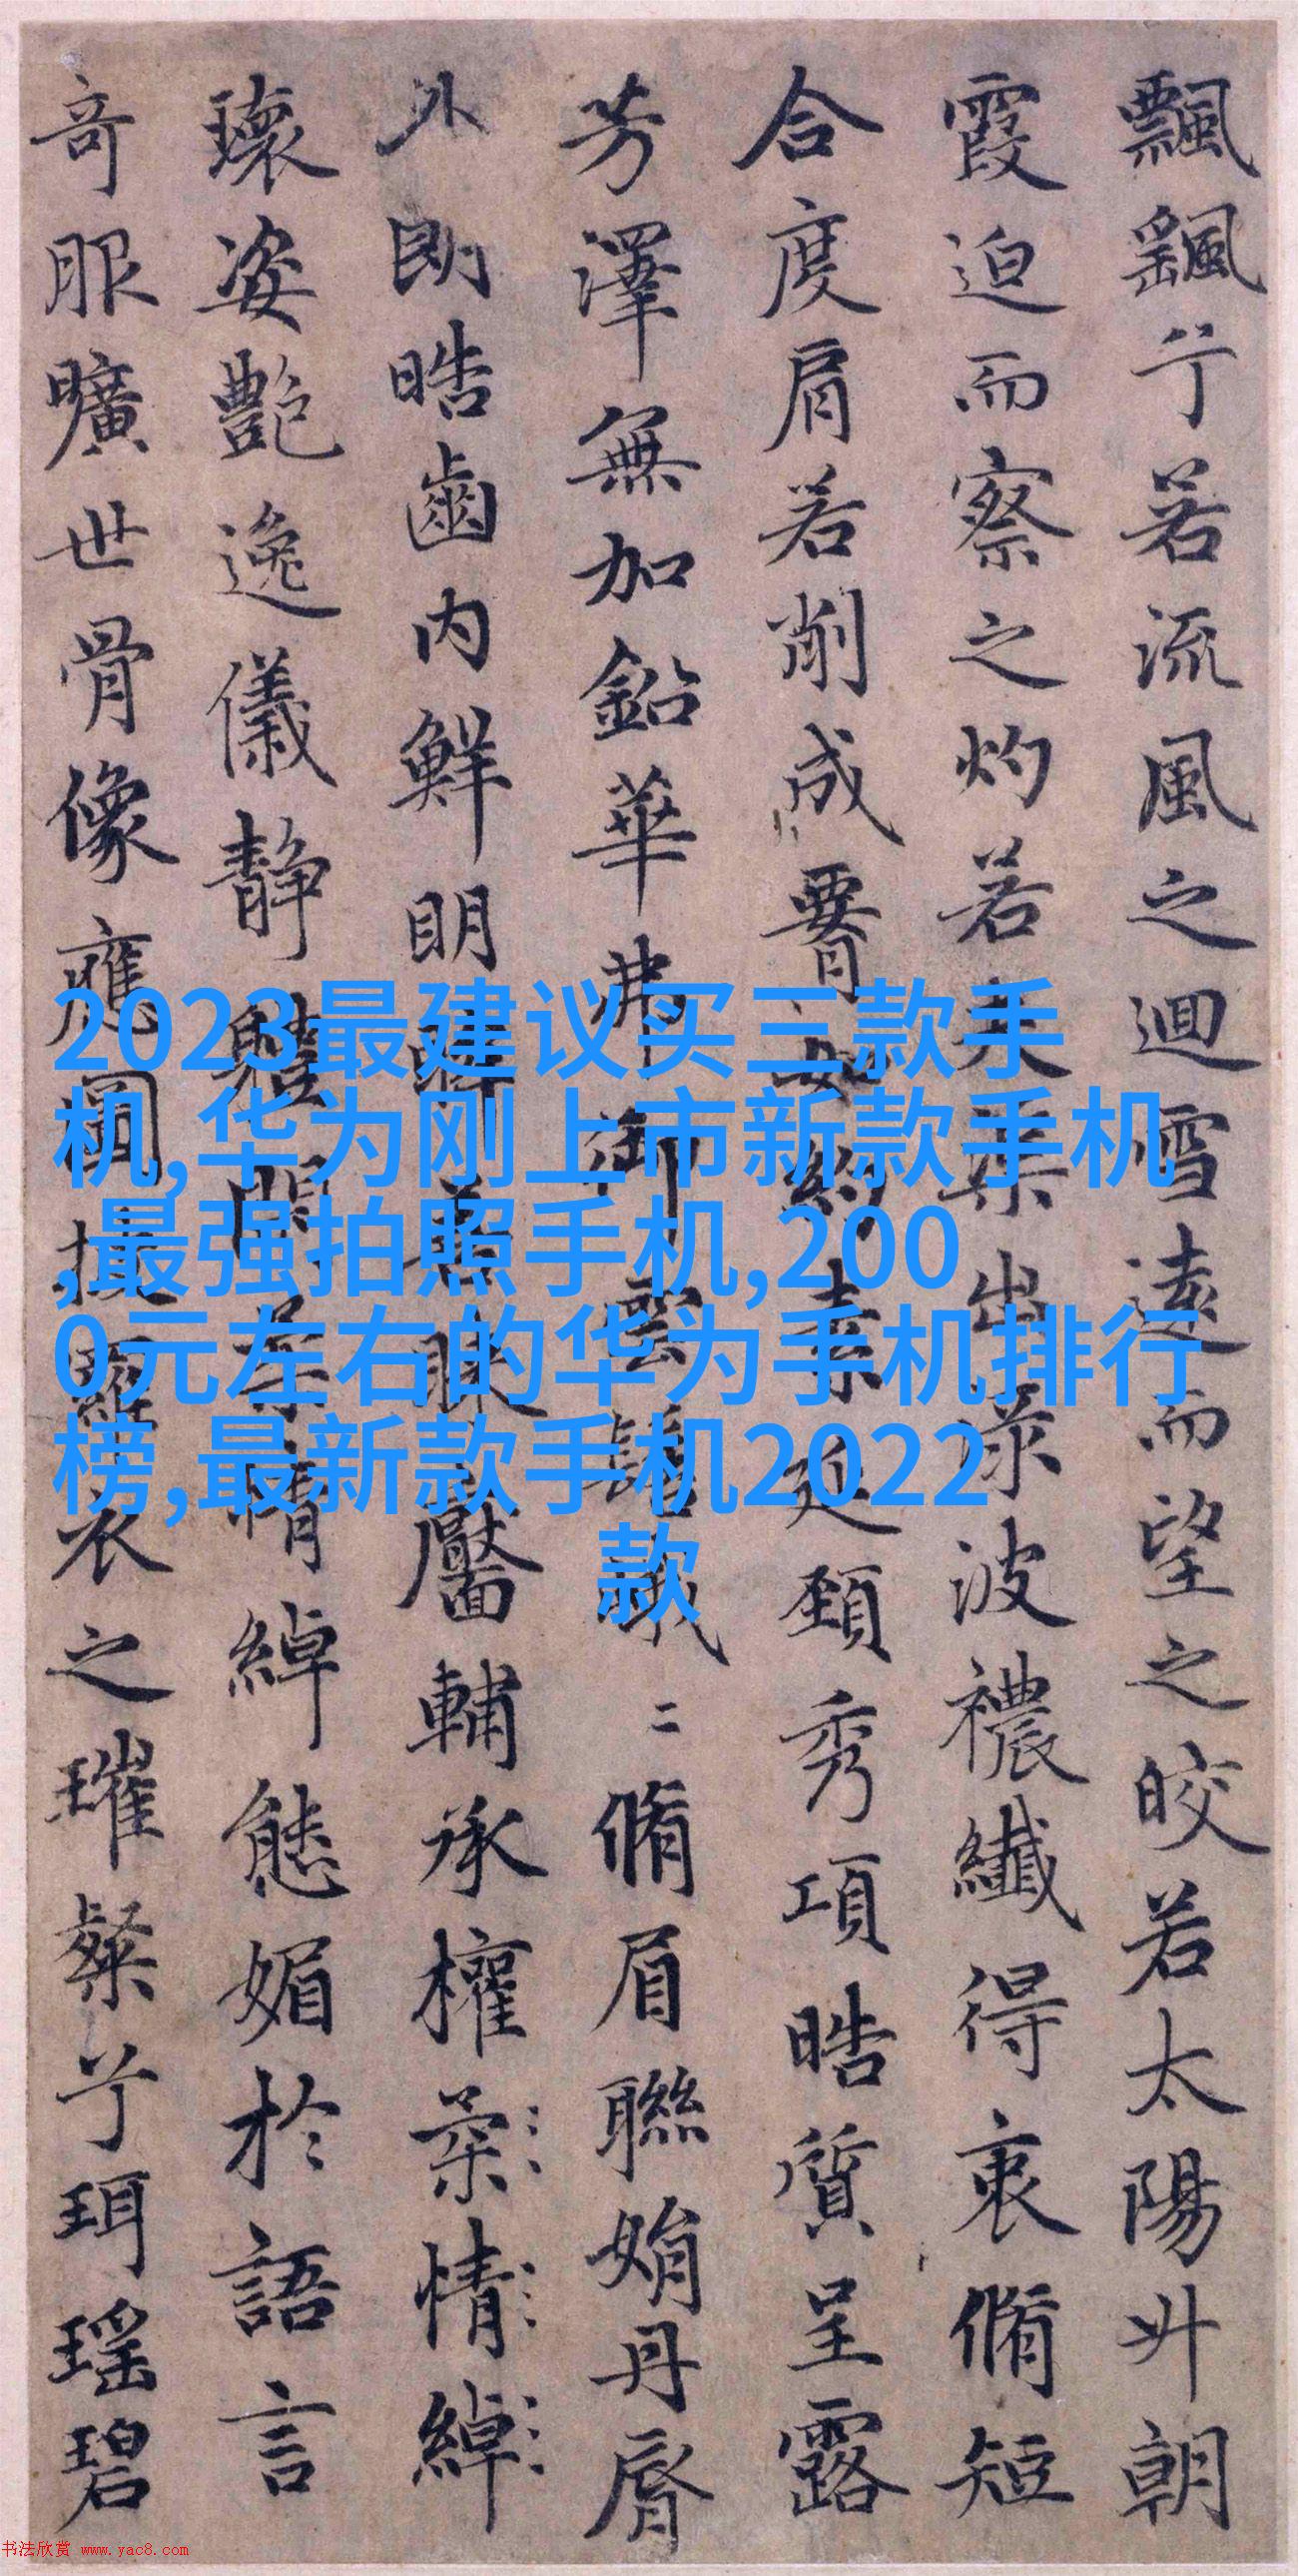 飄颻兮若流風之迴雪遠而望之皎若太陽升朝
霞迫而察之灼若夫渠出淥波禯纖得衷脩短
合度肩若削成腰如約素延頸秀項晧質呈露
芳澤無加鉛華弗御雲髻峨二脩眉聯娟丹脣
外朗晧齒內鮮明眸善睞靨輔承權柔情綽
瓌姿艷逸儀靜體閑柔情綽態媚於語言
奇服曠世骨像應圖披羅衣之璀粲兮珥瑤碧
2023最建议买三款手
机,华为刚上市新款手机
,最强拍照手机,200
0元左右的华为手机排行
榜,最新款手机2022
款
书法欣赏 www.yac8.com